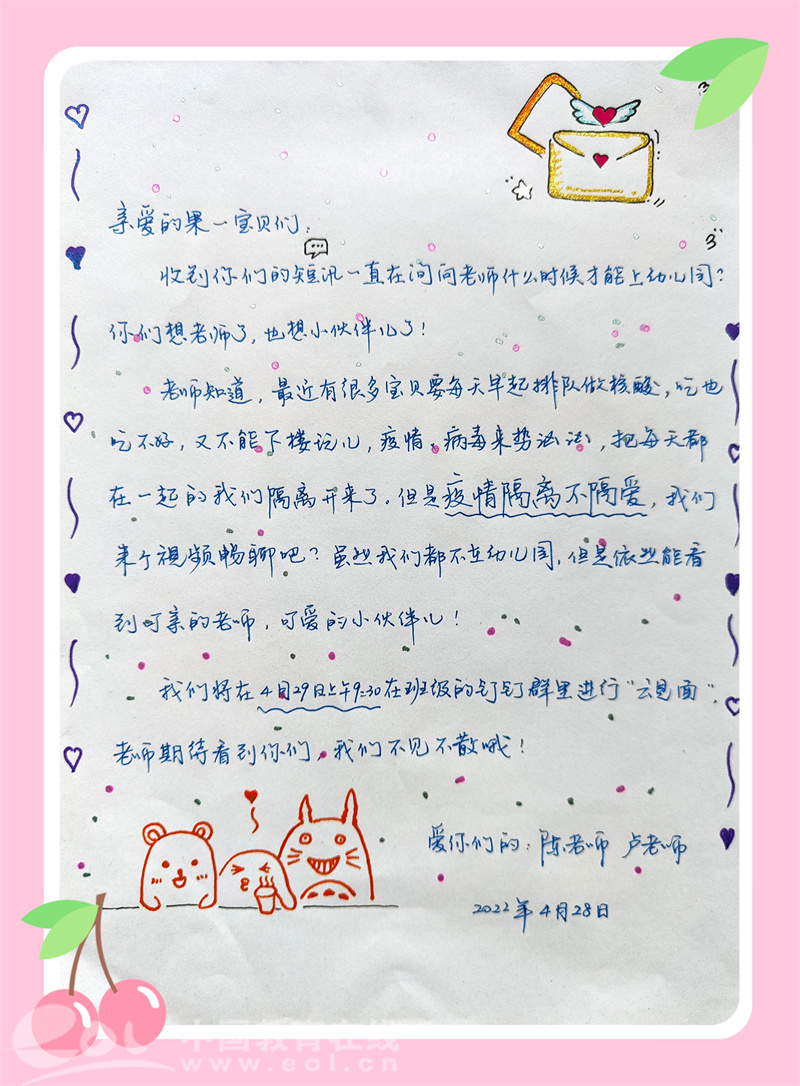 亲爱的果一宝贝们：
收到你们的短讯一直在问问老师什么时候才能上幼儿园？
你们想老师了，也想小伙伴儿了！
老师知道，最近有很多宝贝要每天早起排队做核酸，吃也
吃不好，又不能下楼玩儿，疫情、病毒来势汹汹，把每天都
在一起的我们隔离开来了。但是疫情隔离不隔爱，我们
来个视频畅聊吧？虽然我们都不在幼儿园，但是依然能看
到可亲的老师，可爱的小伙伴儿！
我们将在4月29日上午9:30在班级的钉钉群里进行“云见面”。
老师期待看到你们，我们不见不散哦！
爱你们的：陈老师 卢老师
2022年4月28日
eol 中国教育在线
www.eol.cn